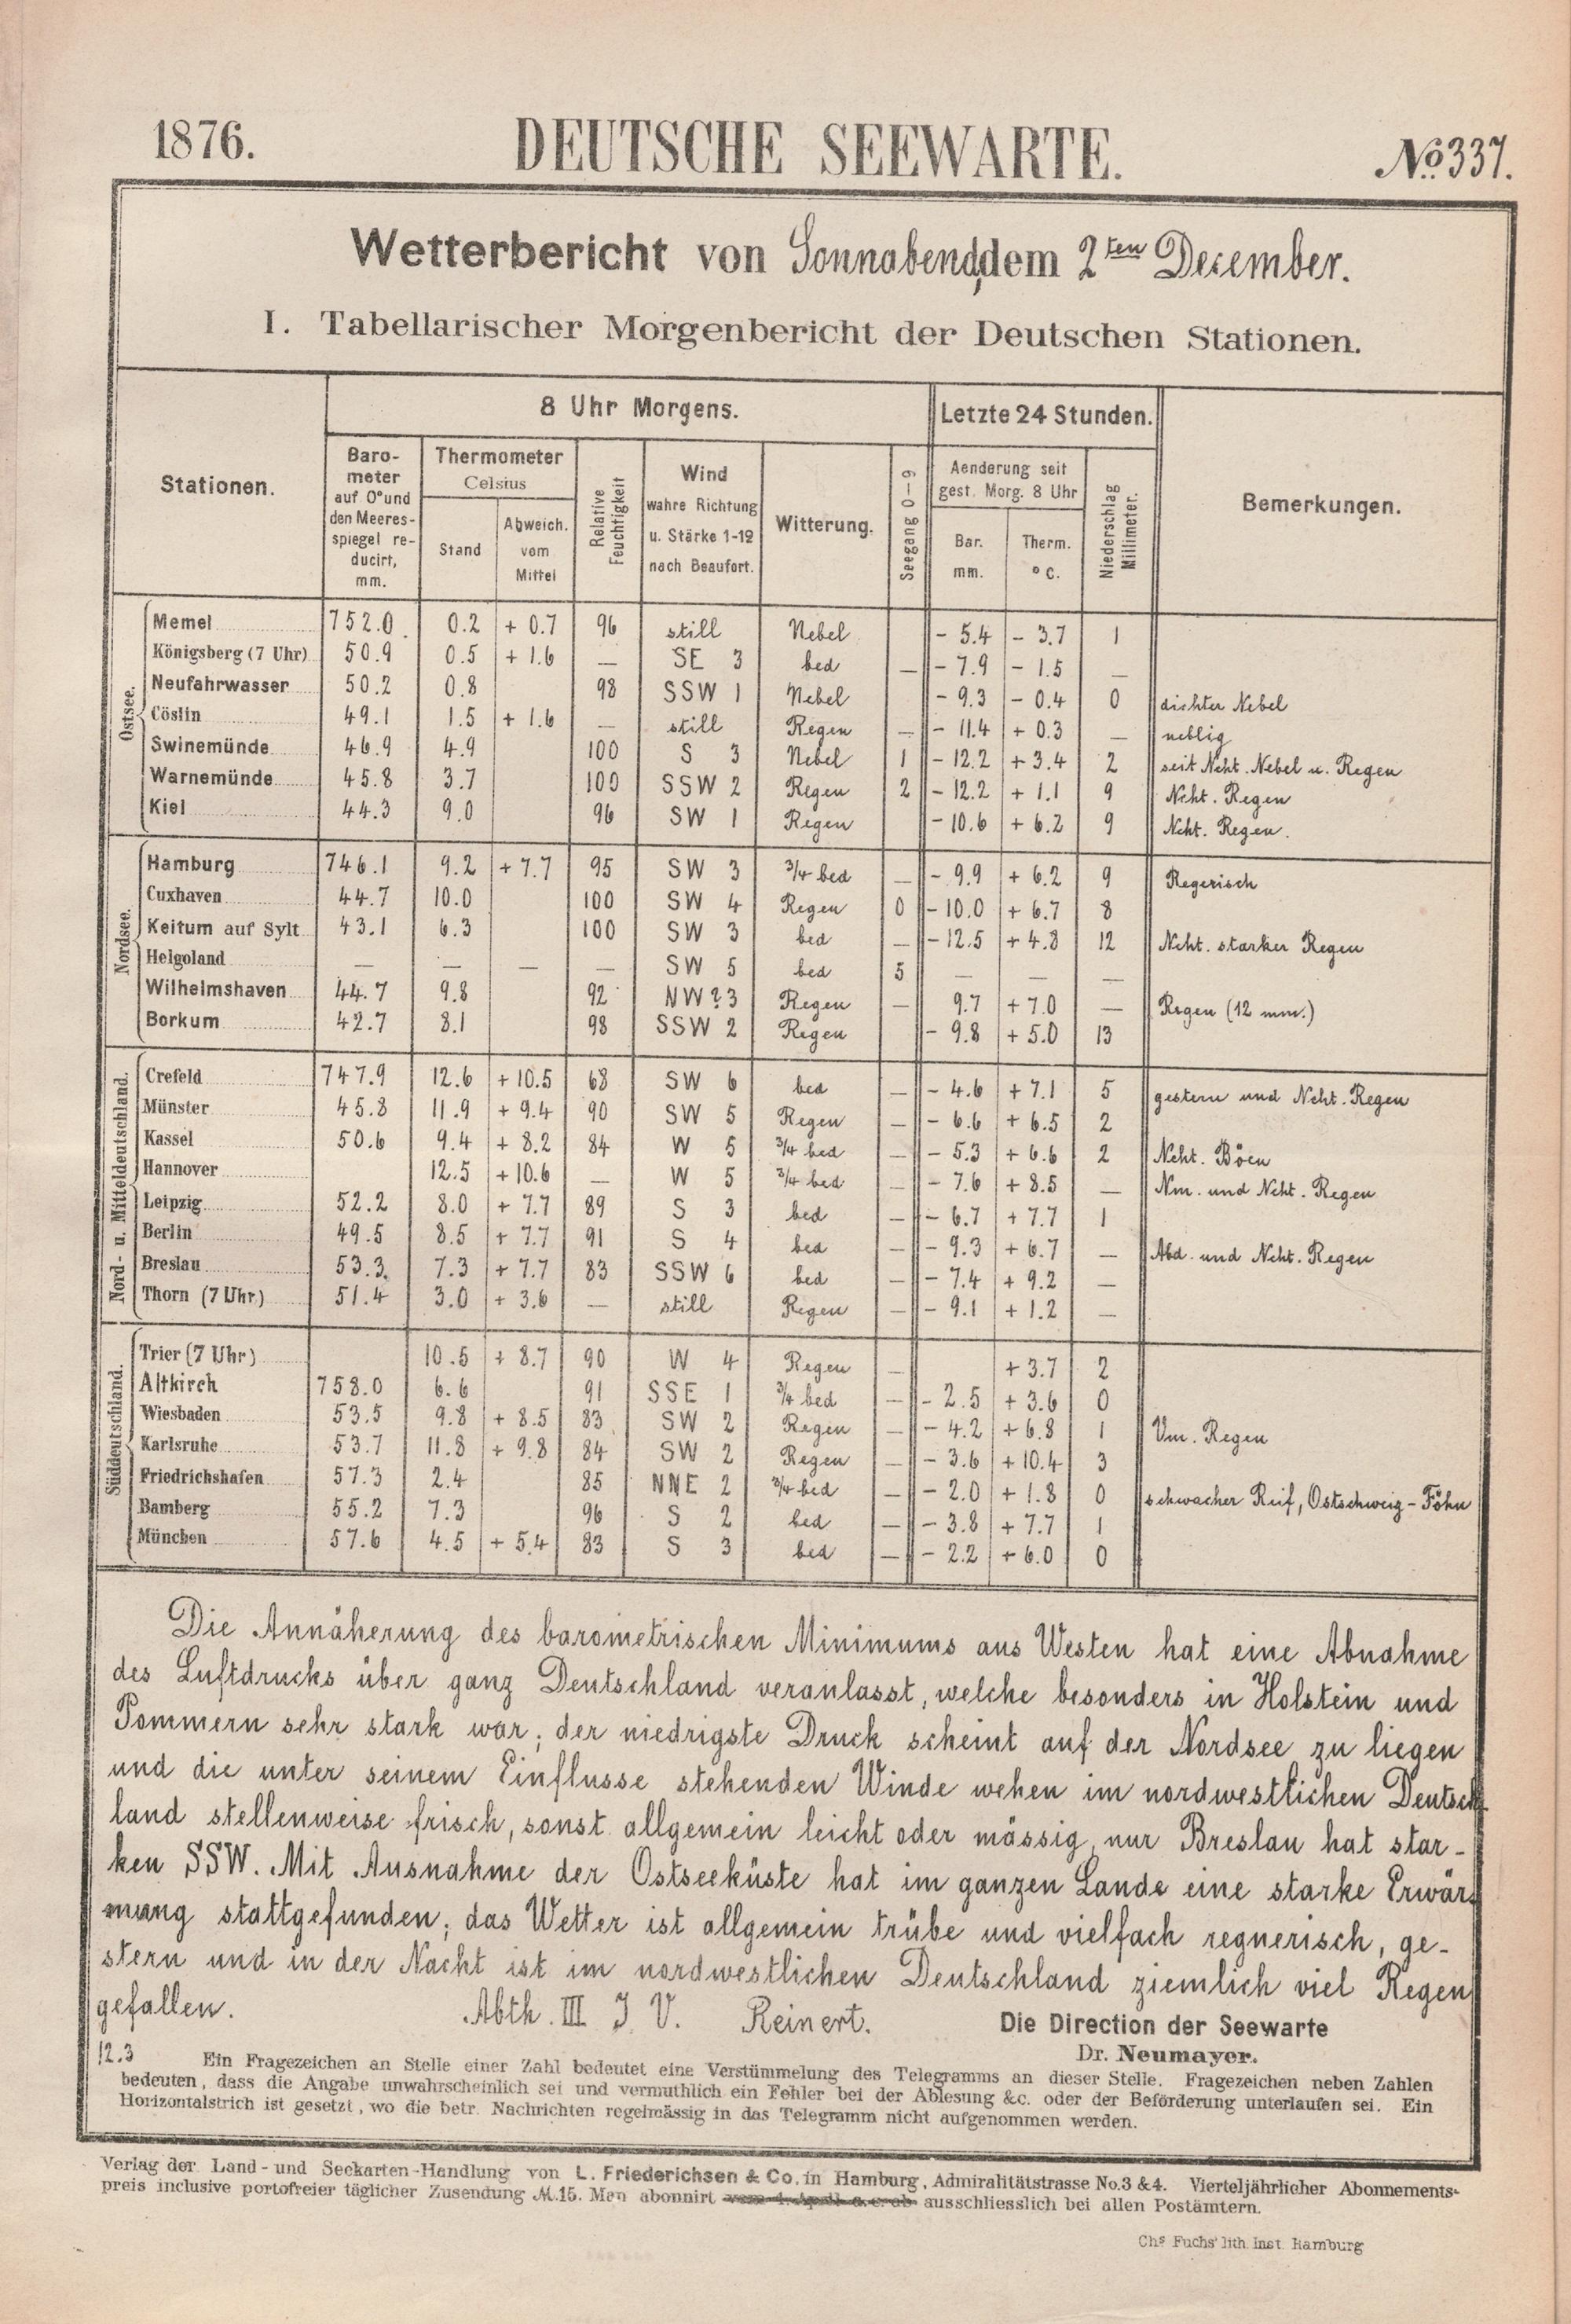 1876. DEUTSCHE SEEWARTE. No. 337.
Wetterbericht von Sonnabend, dem 2ten December.
I. Tabellarischer Morgenbericht der Deutschen Stationen.
8 Uhr Morgens. Letzte 24 Stunden.
Stationen. Barometer auf 0° und den Meeresspiegel reducirt, mm. Thermometer Celsius Stand Abweich. vom Mittel Relative Feuchtigkeit Wind wahre Richtung u. Stärke 1-12 nach Beaufort. Witterung. Seegang 0-9 Aenderung seit gest. Morg. 8 Uhr Bar. mm. Therm. °C. Niederschlag Millimeter. Bemerkungen.
Ostsee.
Memel 752.0 0.2 + 0.7 96 still Nebel - 5.4 - 3.7 1
Königsberg (7 Uhr) 50.9 0.5 + 1.6 — SE 3 bed — - 7.9 - 1.5 —
Neufahrwasser 50.2 0.8 98 SSW 1 Nebel - 9.3 - 0.4 0 dichter Nebel
Cöslin 49.1 1.5 + 1.6 — still Regen — - 11.4 + 0.3 — neblig
Swinemünde 46.9 4.9 100 S 3 Nebel 1 - 12.2 + 3.4 2 seit Ncht. Nebel u. Regen
Warnemünde 45.8 3.7 100 SSW 2 Regen 2 - 12.2 + 1.1 9 Ncht. Regen
Kiel 44.3 9.0 96 SW 1 Regen - 10.6 + 6.2 9 Ncht. Regen.
Nordsee.
Hamburg 746.1 9.2 + 7.7 95 SW 3 3/4 bed — - 9.9 + 6.2 9 Regerisch
Cuxhaven 44.7 10.0 100 SW 4 Regen 0 - 10.0 + 6.7 8
Keitum auf Sylt 43.1 6.3 100 SW 3 bed — - 12.5 + 4.8 12 Ncht. starker Regen
Helgoland — — — — SW 5 bed 5 — — —
Wilhelmshaven 44.7 9.8 92 NW? 3 Regen — 9.7 + 7.0 — Regen (12 mm.)
Borkum 42.7 8.1 98 SSW 2 Regen - 9.8 + 5.0 13
Nord- u. Mitteldeutschland.
Crefeld 747.9 12.6 + 10.5 68 SW 6 bed — - 4.6 + 7.1 5 gestern und Ncht. Regen
Münster 45.8 11.9 + 9.4 90 SW 5 Regen — - 6.6 + 6.5 2
Kassel 50.6 9.4 + 8.2 84 W 5 3/4 bed — - 5.3 + 6.6 2 Ncht. Böen
Hannover 12.5 + 10.6 — W 5 3/4 bed — - 7.6 + 8.5 — Nm. und Ncht. Regen
Leipzig 52.2 8.0 + 7.7 89 S 3 bed — - 6.7 + 7.7 1
Berlin 49.5 8.5 + 7.7 91 S 4 bed — - 9.3 + 6.7 — Abd. und Ncht. Regen
Breslau 53.3 7.3 + 7.7 83 SSW 6 bed — - 7.4 + 9.2 —
Thorn (7 Uhr) 51.4 3.0 + 3.6 — still Regen — - 9.1 + 1.2 —
Süddeutschland.
Trier (7 Uhr) 10.5 + 8.7 90 W 4 Regen — + 3.7 2
Altkirch 758.0 6.6 91 SSE 1 3/4 bed — - 2.5 + 3.6 0
Wiesbaden 53.5 9.8 + 8.5 83 SW 2 Regen — - 4.2 + 6.8 1 Vm. Regen
Karlsruhe 53.7 11.8 + 9.8 84 SW 2 Regen — - 3.6 + 10.4 3
Friedrichshafen 57.3 2.4 85 NNE 2 3/4 bed — - 2.0 + 1.8 0 schwacher Reif, Ostschweiz - Föhn
Bamberg 55.2 7.3 96 S 2 bed — - 3.8 + 7.7 1
München 57.6 4.5 + 5.4 83 S 3 bed — - 2.2 + 6.0 0
Die Annäherung des barometrischen Minimums aus Westen hat eine Abnahme
des Luftdrucks über ganz Deutschland veranlasst, welche besonders in Holstein und
Pommern sehr stark war; der niedrigste Druck scheint auf der Nordsee zu liegen
und die unter seinem Einflusse stehenden Winde wehen im nordwestlichen Deutsch-
land stellenweise frisch, sonst allgemein leicht oder mässig, nur Breslau hat star-
ken SSW. Mit Ausnahme der Ostseeküste hat im ganzen Lande eine starke Erwär-
mung stattgefunden; das Wetter ist allgemein trübe und vielfach regnerisch, ge-
stern und in der Nacht ist im nordwestlichen Deutschland ziemlich viel Regen
gefallen. Abth. III J. V. Reinert. Die Direction der Seewarte
12.3 Dr. Neumayer.
Ein Fragezeichen an Stelle einer Zahl bedeutet eine Verstümmelung des Telegramms an dieser Stelle. Fragezeichen neben Zahlen
bedeuten, dass die Angabe unwahrscheinlich sei und vermuthlich ein Fehler bei der Ablesung &c. oder der Beförderung unterlaufen sei. Ein
Horizontalstrich ist gesetzt, wo die betr. Nachrichten regelmässig in das Telegramm nicht aufgenommen werden.
Verlag der Land- und Seekarten-Handlung von L. Friederichsen & Co. in Hamburg, Admiralitätstrasse No. 3 & 4. Vierteljährlicher Abonnements-
preis inclusive portofreier täglicher Zusendung M. 15. Man abonnirt vom 1. April a. c. ab ausschliesslich bei allen Postämtern.
Chs Fuchs' lith. Inst. Hamburg